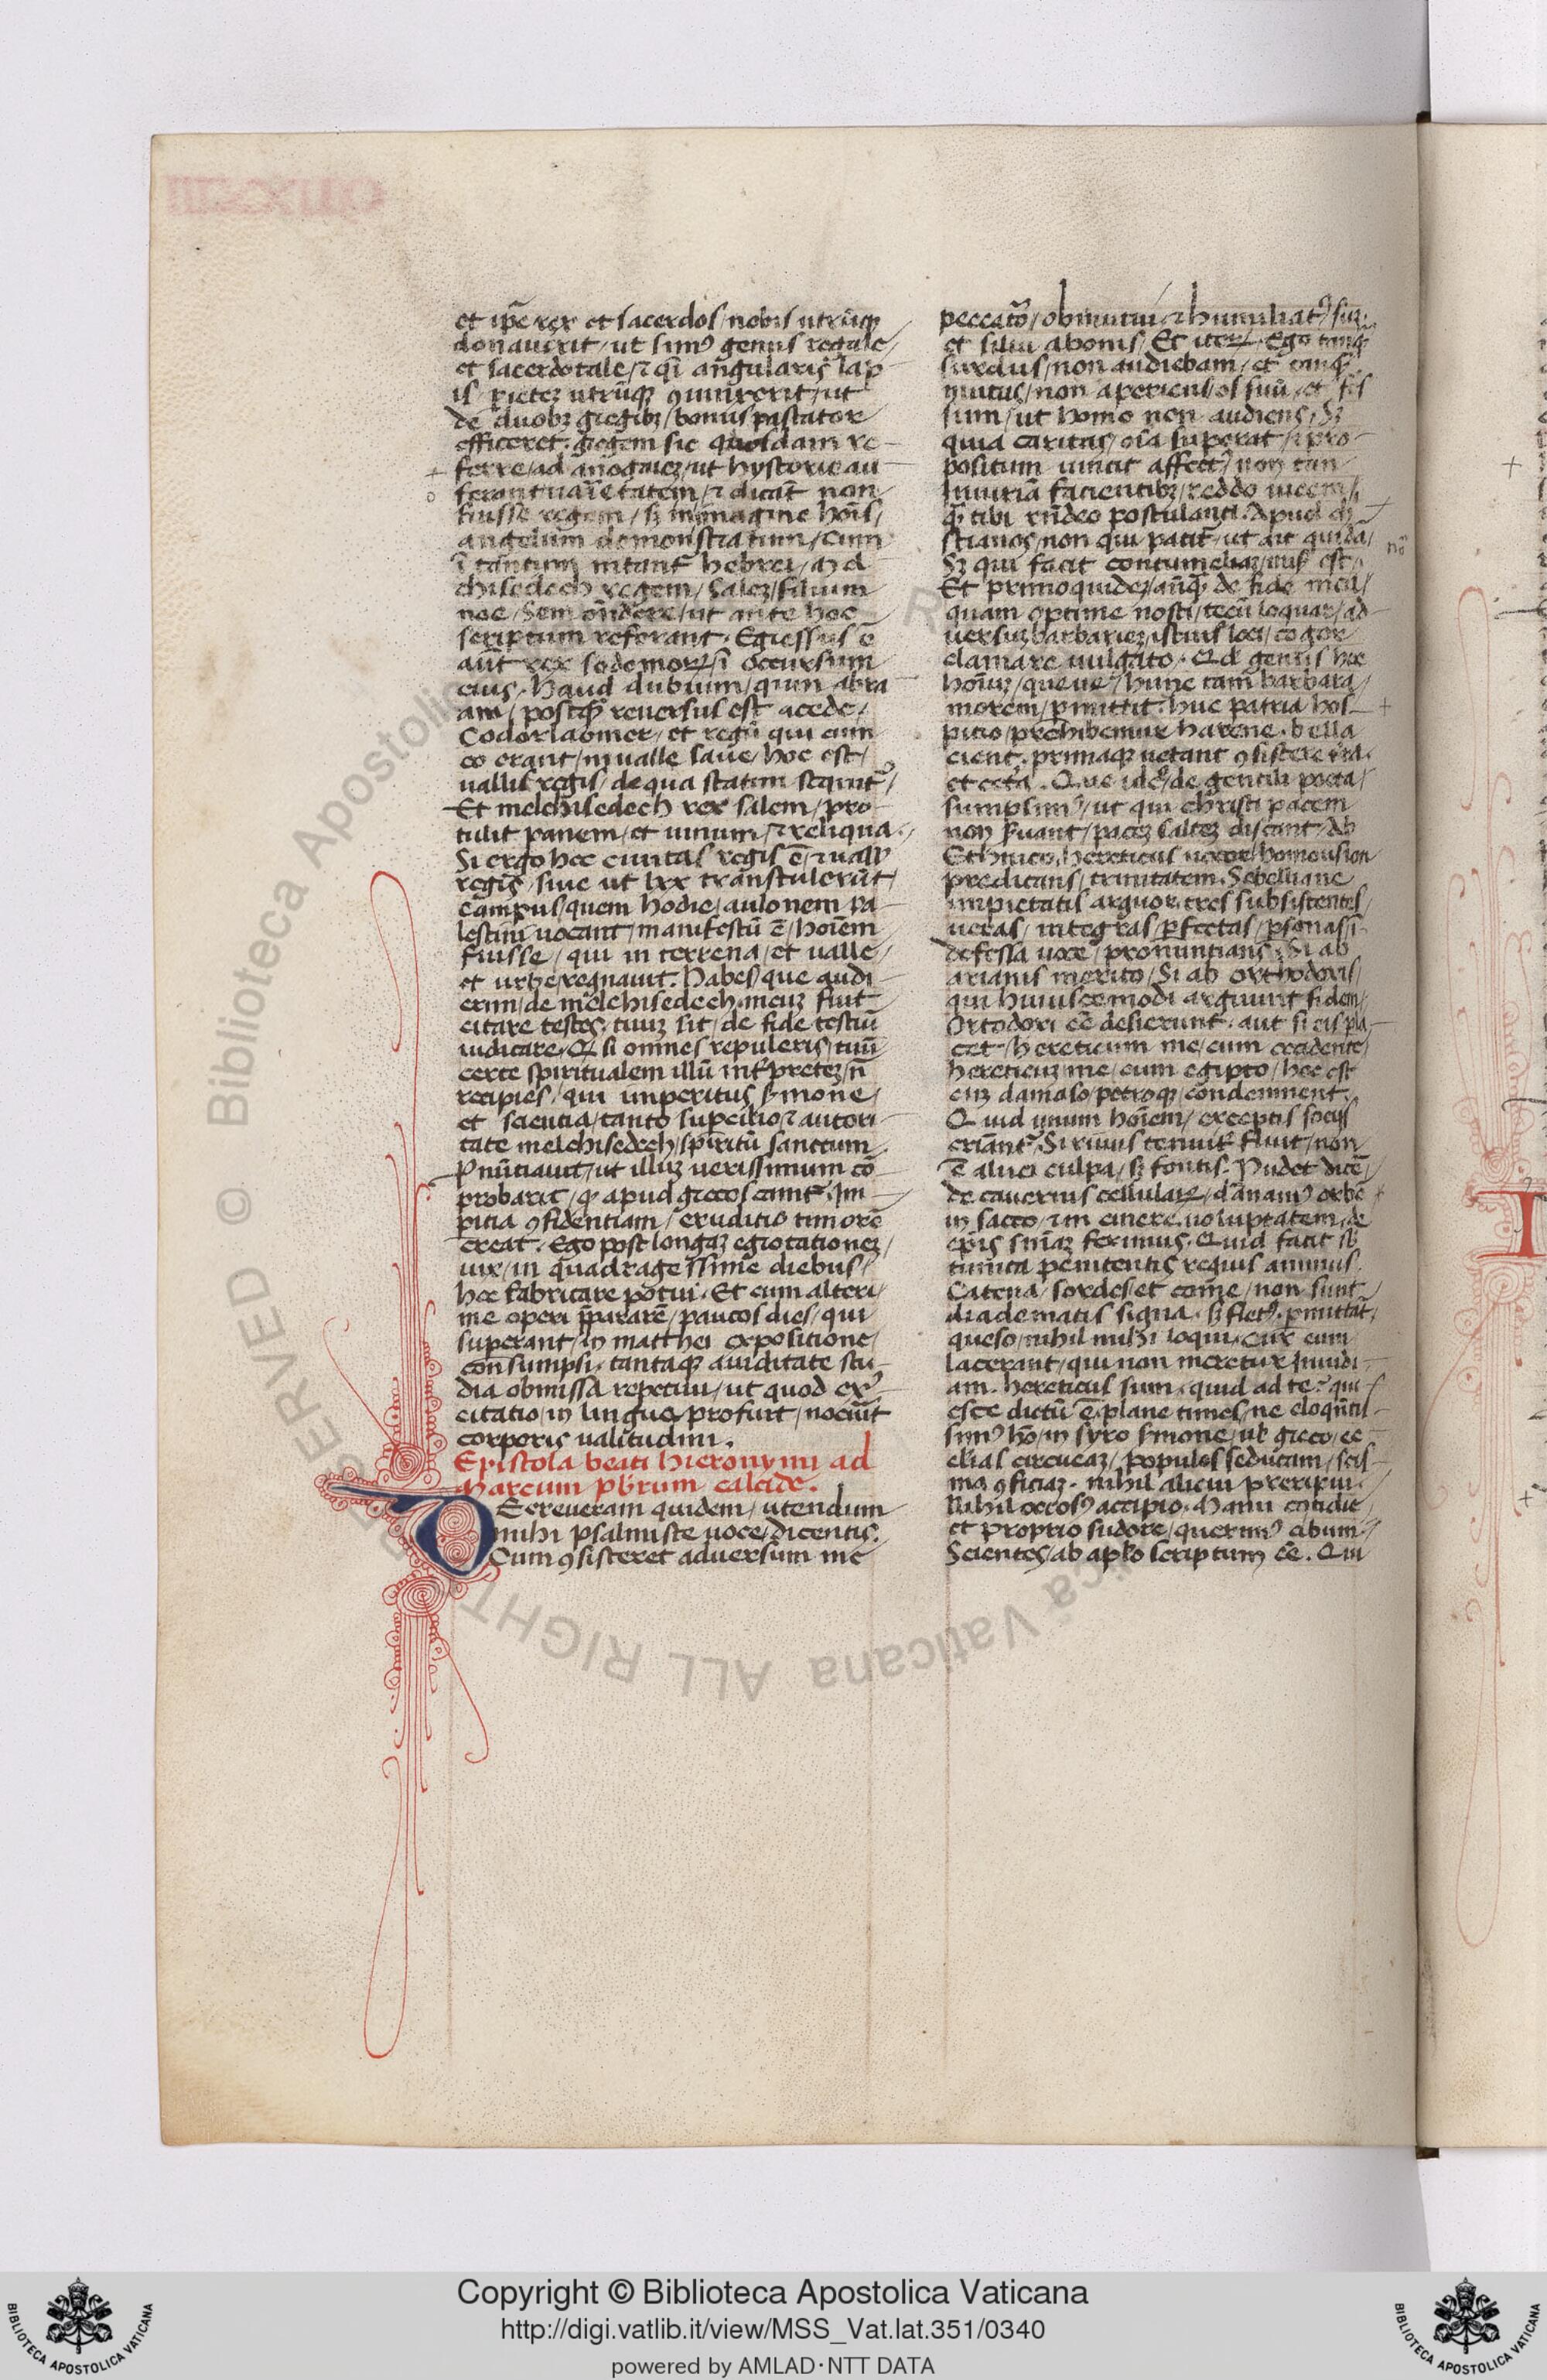 et ip̄e rex et sacerdos/nobis utrūqꝫ
donauerit/ut simꝰ genus regale/
et sacerdotale/⁊ qī angularis lap
is/pietez utrūqꝫ ꝯiunxerit/ut
de duobꝫ gregibꝫ/bonus pastator
efficeret. gregem sic quosdam re
ferre/ad anogaiez/ut hystorie au
ferant uarietatem/⁊ dicāt non
fuisse regem/sꝫ in imagine hoīs/
angelum demonstratum/cum
ī tantum nitant᷑ hebrei/Mel
chisedech regem/Salez/filium
noe/Sem on̄dere/ut ante hoc
scriptum referant. Egressus ē
aūt rex sodomoꝝ/ī occursum
eius. Haud dubium/quin abra
am/postqꝫ reuersus est acede/
Codorlaomer/et regū qui cum
eo erant/in ualle saue/hoc est/
uallis regis/de qua statim sequit᷑/
Et melchisedech rex salem/pro
tulit panem/et uinum/⁊ reliqua./
Si ergo hec ciuitas regis ē/⁊ uall'
regis/siue ut lxx transtulerūt/
campus/quem hodie/aulonem pa
lestini uocant/manifestū ē/hoīem
fuisse/qui in terrena/et ualle/
et urbe/regnauit. Habes/que audi
erim/de melchisedech. meuz fuit
citare testes/tuuz sit/de fide testiū
iudicare. Q si omnes repuleris/tuū
certe spiritualem illū int᷑pretez/n̄
recipies/qui imperitus s̕mone/
et scientia/tanto sup̄cilio/⁊ autori
tate melchisedech/spiritū sanctum
p̄nūtiauit/ut illuz uerissimum cō
probarit/qꝫ apud grecos canit᷑. Im
pitia ꝯfidentiam/eruditio timorē
creat. Ego post longaz egrotationez/
uix/in quadragessime diebus/
hec fabricare potui. Et cum alteri/
me operi p̄pararē/paucos dies/qui
superant/in matthei expositione/
consumpsi. tantaqꝫ auiditate stu
dia obmissa repetiui/ut quod ex᷑
citatio/in lingua profuit/nocuit
corporis ualitudini.
Epistola beati hieronymi ad
Marcum pb̄rum calcide.
Decreueram quidem/utendum
mihi psalmiste uoce/dicentis.
Cum ꝯsisteret aduersum me
peccator̄/obmutui/⁊ humiliatꝰ sū.
et silui abonis/Et iteꝝ. Ego tanqꝫ
surdus/non audiebam/et tanqꝫ
mutus/non aperiens/os suū/et fc̄s
sum/ut homo non audiens/Sꝫ
quia caritas/oīa superat/⁊ pro
positum uincit affectꝰ/non tan
iniuriā facientibꝫ/reddo uicem/
qꝫ tibi rn̄deo postulanti. Apud ch̄
stianos/non qui patit᷑/ut ait quidā/
Sꝫ qui facit contumeliaz/mis̕ est.
Et primo quidez/an̄qꝫ de fide mea/
quam optime nosti/tecū loquar/ad
uersuz barbariez/istius loci/cogor
clamare uulgato. Qd' gentis hoc
hoīuz/queue/hunc tam barbara/
morem/p̄mittit. huc patria hos
pitio/prohibemur harene. bella
cient. primaqꝫ uetant ꝯsistere t̄ra.
et cet̄a. Que idc̄o/de gentili poeta/
sumpsimꝰ/ut qui christi pacem
non s̕uant/pacez saltez discant. Ab
Ethnico. hereticus uocor/homousion
predicans/trinitatem. Sebelliane
impietatis arguor. tres subsistentes/
ueras/integras/p̄fectas/p̄sonas/ī
defessa uoce/pronuntians. Si ab
arianis merito/Si ab orthodoxis/
qui huiuscemodi arguunt fidem/
Ortodoxi eē desierunt. aut si eis pla
cet/hereticum me/cum occidente/
hereticuz me/cum egipto/hoc est
cuz damaso/petroqꝫ/condemnent.
Quid unum hoīem/exceptis sociis
criānt᷑. Si riuus tenuit᷑ fluit/non
ē aluei culpa/sꝫ fontis. Pudet dicē/
de cauernis cellulaꝝ/dānamꝰ orbē
in sacco/⁊ in cinere uoluptatem/de
epīs sniāz ferimus. Quid facit sb'
tunica penitentis regius animus.
Catena/sordes/et come/non sunt
diadematis signa. sꝫ fletꝰ. p̄mittāt/
queso/nihil mihi loqui. cur eum
lacerant/qui non meretur/inuidi
am. hereticus sum. quid ad te? qui
esce dictū ē. plane times/ne eloquētis
simꝰ hō/in syro s̕mone/ul' greco/ec
clesias circueaz/populos seducam/scis
ma ꝯficiaz. nihil alicui preripui.
Nihil occosꝰ accipio. Manu cotidie/
et proprio sudore/querimꝰ cibum/
Scientes/ab ap̄lo scriptum eē. Qui
Copyright © Biblioteca Apostolica Vaticana
http://digi.vatlib.it/view/MSS_Vat.lat.351/0340
powered by AMLAD·NTT DATA
BIBLIOTECA APOSTOLICA VATICANA
BIBLIOTECA APOSTOLICA VATICANA
© Biblioteca Apostolica Vaticana ALL RIGHTS RESERVED